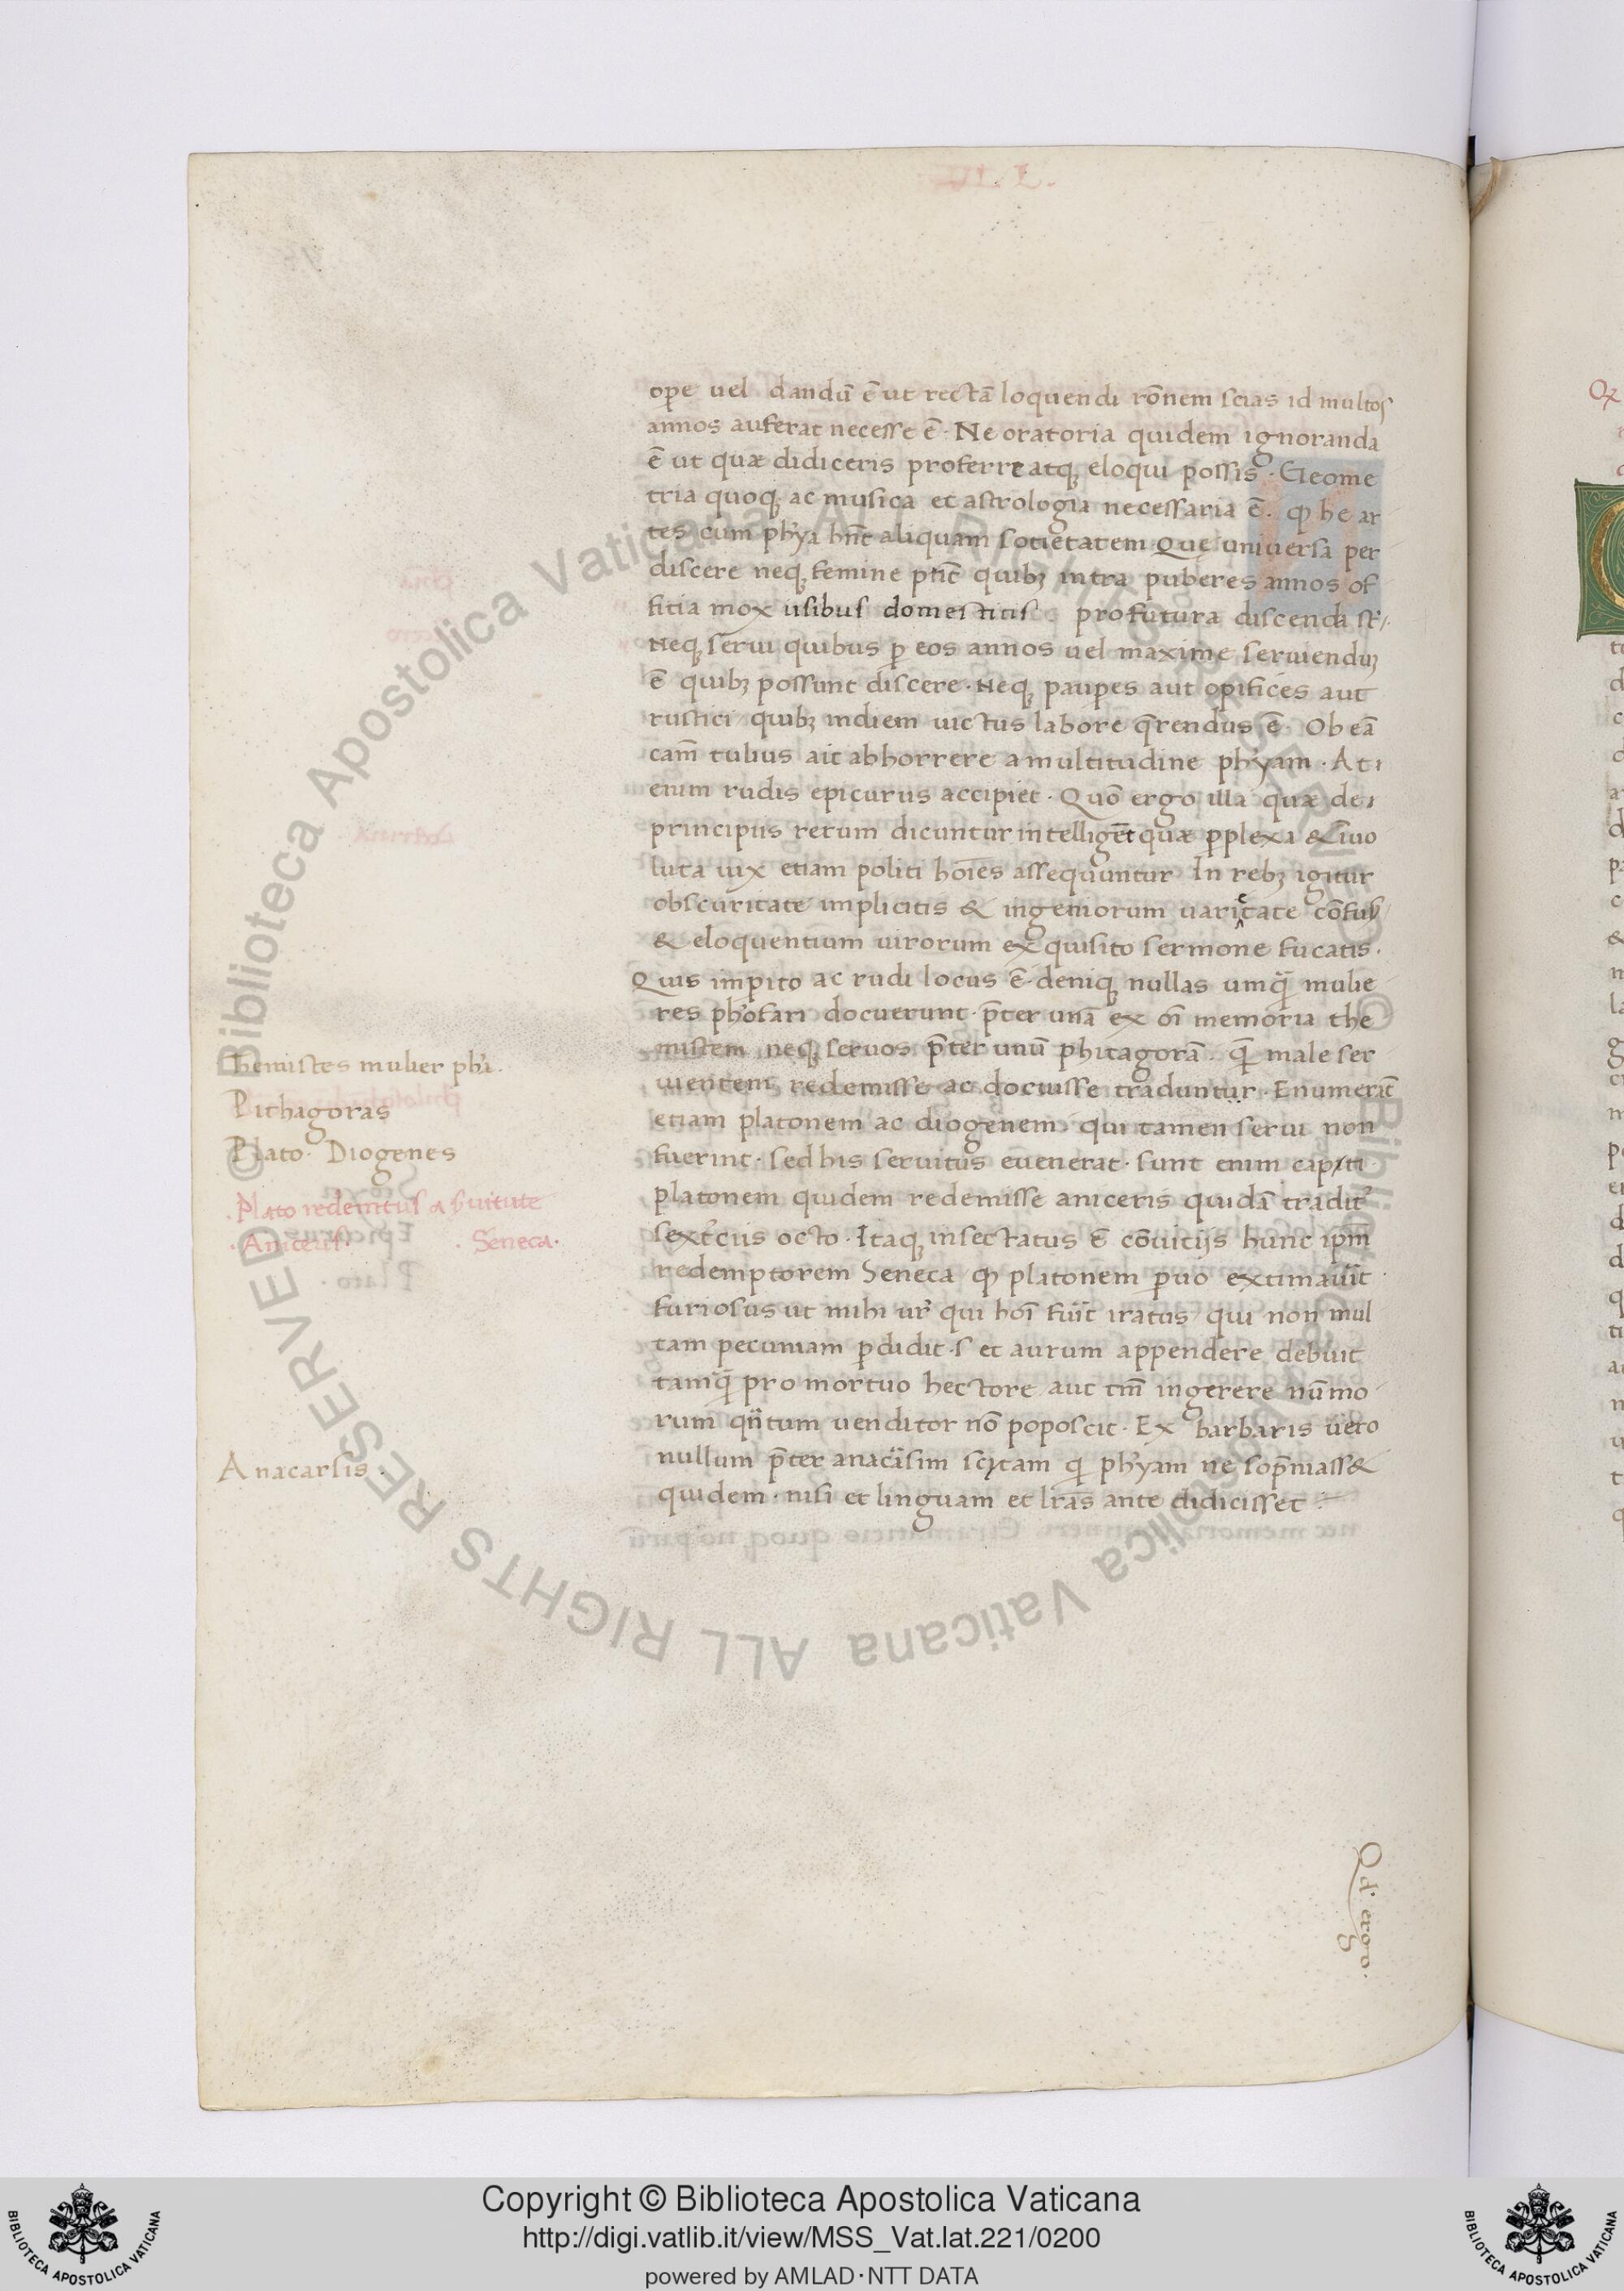 VI. L.
ope vel dandū ē ut rectā loquendi rōnem scias id multos
annos auferat necesse ē · Ne oratoria quidem ignoranda
ē ut quæ didiceris proferre atq; eloqui possis · Geome
tria quoq; ac musica et astrologia necessaria ē · qꝫ he ar
tes cum phya hnt aliquam societatem Que universa per
discere neq; femine pnt quibꝫ intra puberes annos of
ficia mox usibus domesticis profutura discenda st
Neq; servi quibus p eos annos vel maxime servienduꝫ
ē quibꝫ possunt discere · Neq; paupes aut opifices aut
rustici quibꝫ indiem victus labore qrendus ē · Ob eā
cam̄ tulius ait abhorrere a multitudine phyam · At
enim rudis epicurus accipiet · Quō ergo illa quæ de
principiis rerum dicuntur intelliget quæ pplexa & īvo
luta vix etiam politi hoīes assequuntur In rebꝫ igitur
obscuritate implicitis & ingeniorum varietate cōfus
& eloquentium virorum exquisito sermone fucatis ·
Quis impito ac rudi locus ē · deniq; nullas umq̄ mulie
res phōfari docuerunt · pter unā ex oī memoria the
mistem neq; servos pter unū phitagorā · q̄ male ser
vientem redemisse ac docuisse traduntur · Enumerāt
etiam platonem ac diogenem qui tamen servi non
fuerint · sed his servitus evenerat · sunt enim capti
platonem quidem redemisse aniceris quidā tradit
sextciis octo · Itaq; insectatus ē cōvitijs hunc ipm̄
redemptorem Seneca qꝫ platonem pvo extimavit
furiosus ut mihi ur̄ qui hoī fuit iratus qui non mul
tam pecuniam pdidit · s et aurum appendere debuit
tamq̄ pro mortuo hectore aut tm̄ ingerere nūmo
rum qntum venditor nō poposcit · Ex barbaris vero
nullum pter anacarsim scytam q phyam ne sopniass&
quidem · nisi et linguam et lras ante didicisset
Themistes mulier phi ·
Pithagoras
Plato · Diogenes
· Plato redemtus a svitute
· Aniceris · · Seneca ·
Anacarsis ·
Qd' ergo ·
Copyright © Biblioteca Apostolica Vaticana
http://digi.vatlib.it/view/MSS_Vat.lat.221/0200
powered by AMLAD·NTT DATA
BIBLIOTECA APOSTOLICA VATICANA
BIBLIOTECA APOSTOLICA VATICANA
© Biblioteca Apostolica Vaticana ALL RIGHTS RESERVED
© Biblioteca Apostolica Vaticana ALL RIGHTS RESERVED